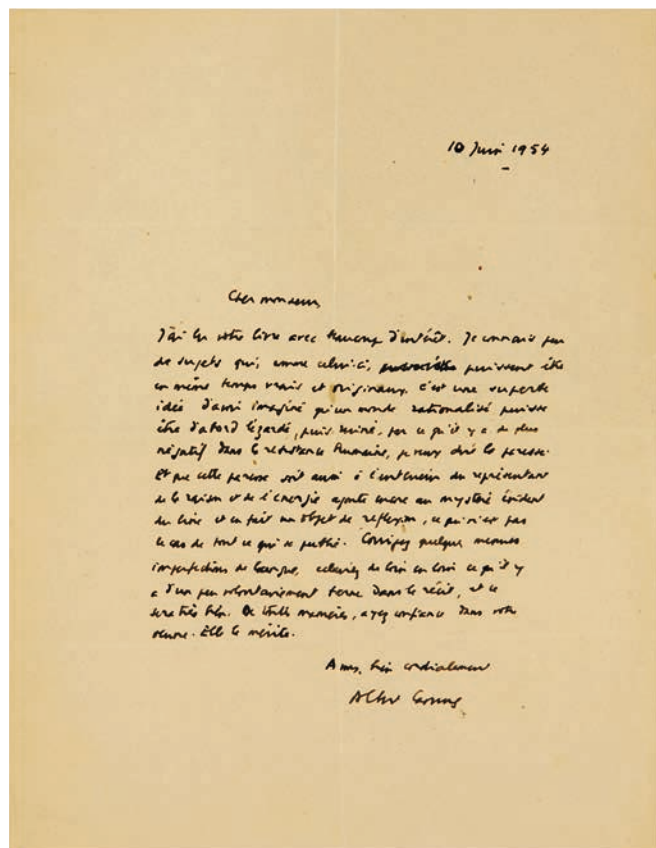 10 Juin 1954
Cher monsieur,
J'ai lu votre livre avec beaucoup d'intérêt. Je connais peu
de sujets qui, comme celui-ci, puissent être
en même temps vrais et originaux. C'est une superbe
idée d'avoir imaginé qu'un monde rationalisé puisse
être d'abord lézardé, puis ruiné, par ce qu'il y a de plus
négatif dans la résistance humaine, je veux dire la paresse.
Et que cette paresse soit aussi à l'intérieur du représentant
de la raison et de l'énergie ajoute encore au mystère évident
du livre et en fait un objet de réflexion, ce qui n'est pas
le cas de tout ce qui se publie. Corrigez quelques menues
imperfections de langue, de loin en loin ce qu'il y
a d'un peu volontairement terne dans le récit, et ce
sera très bien. De toute manière, ayez confiance dans votre
œuvre. Elle le mérite.
A vous, bien cordialement
Albert Camus